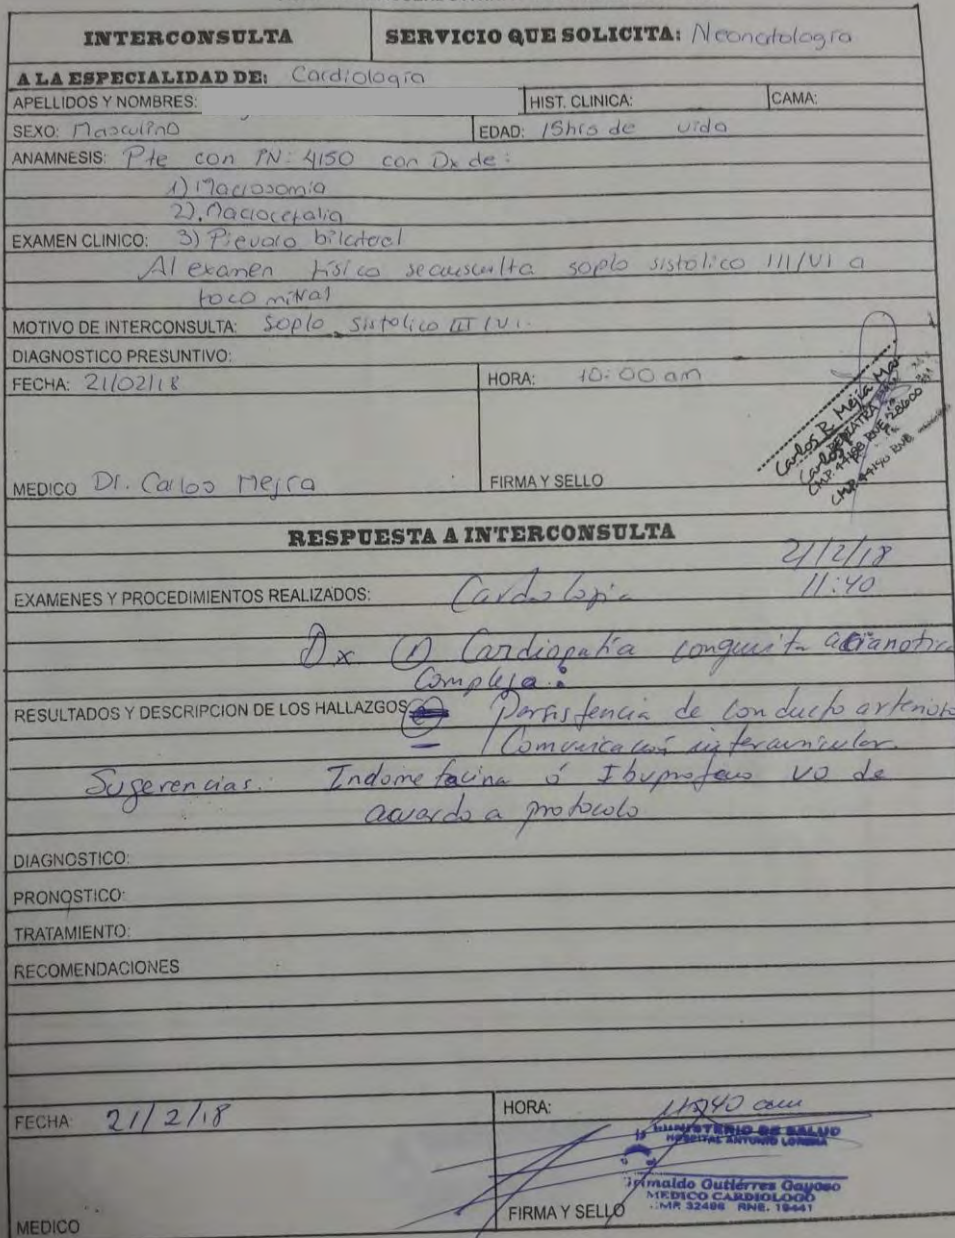 INTERCONSULTA SERVICIO QUE SOLICITA: Neonatología
A LA ESPECIALIDAD DE: Cardiología
APELLIDOS Y NOMBRES: HIST. CLINICA: CAMA:
SEXO: Masculino EDAD: 15hrs de vida
ANAMNESIS: Pte con PN: 4150 con Dx de:
1) Macrosomia
2). Macrocefalia
EXAMEN CLINICO: 3) Pievaro bilateral
Al examen físico se ausculta soplo sistólico III/VI a
foco mitral
MOTIVO DE INTERCONSULTA: Soplo sistolico III/VI.
DIAGNOSTICO PRESUNTIVO:
FECHA: 21/02/18 HORA: 10:00 am
Carlos R. Mejía
PEDIATRA
MEDICO Dr. Carlos Mejía FIRMA Y SELLO
RESPUESTA A INTERCONSULTA
21/2/18
EXAMENES Y PROCEDIMIENTOS REALIZADOS: Cardiología 11:40
Dx (1) Cardiopatía congenita acianotica
Compleja:
RESULTADOS Y DESCRIPCION DE LOS HALLAZGOS - Persistencia de conducto arterioso
- Comunicación interauricular.
Sugerencias: Indometacina ó Ibuprofeno VO de
acuerdo a protocolo
DIAGNOSTICO:
PRONOSTICO:
TRATAMIENTO:
RECOMENDACIONES
FECHA: 21/2/18 HORA: 11:40 am
MINISTERIO DE SALUD
HOSPITAL ANTONIO LORENA
Grimaldo Gutiérrez Gayoso
MEDICO CARDIOLOGO
CMP. 32496 RNE. 19441
MEDICO FIRMA Y SELLO